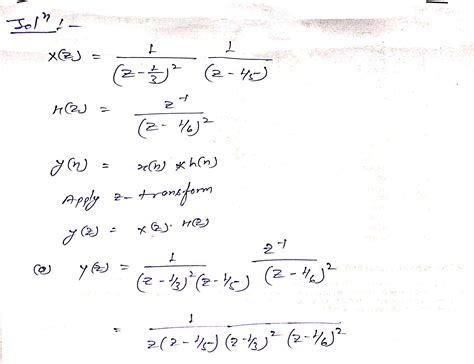 Solⁿ :-
X(z) = 1/(z - 1/3)² 1/(z - 1/5)
H(z) = z⁻¹/(z - 1/6)²
y(n) = x(n) * h(n)
Apply z-transform
y(z) = x(z). H(z)
(a) y(z) = 1/((z - 1/3)² (z - 1/5)) z⁻¹/(z - 1/6)²
= 1/(z(z - 1/5) (z - 1/3)² (z - 1/6)²)